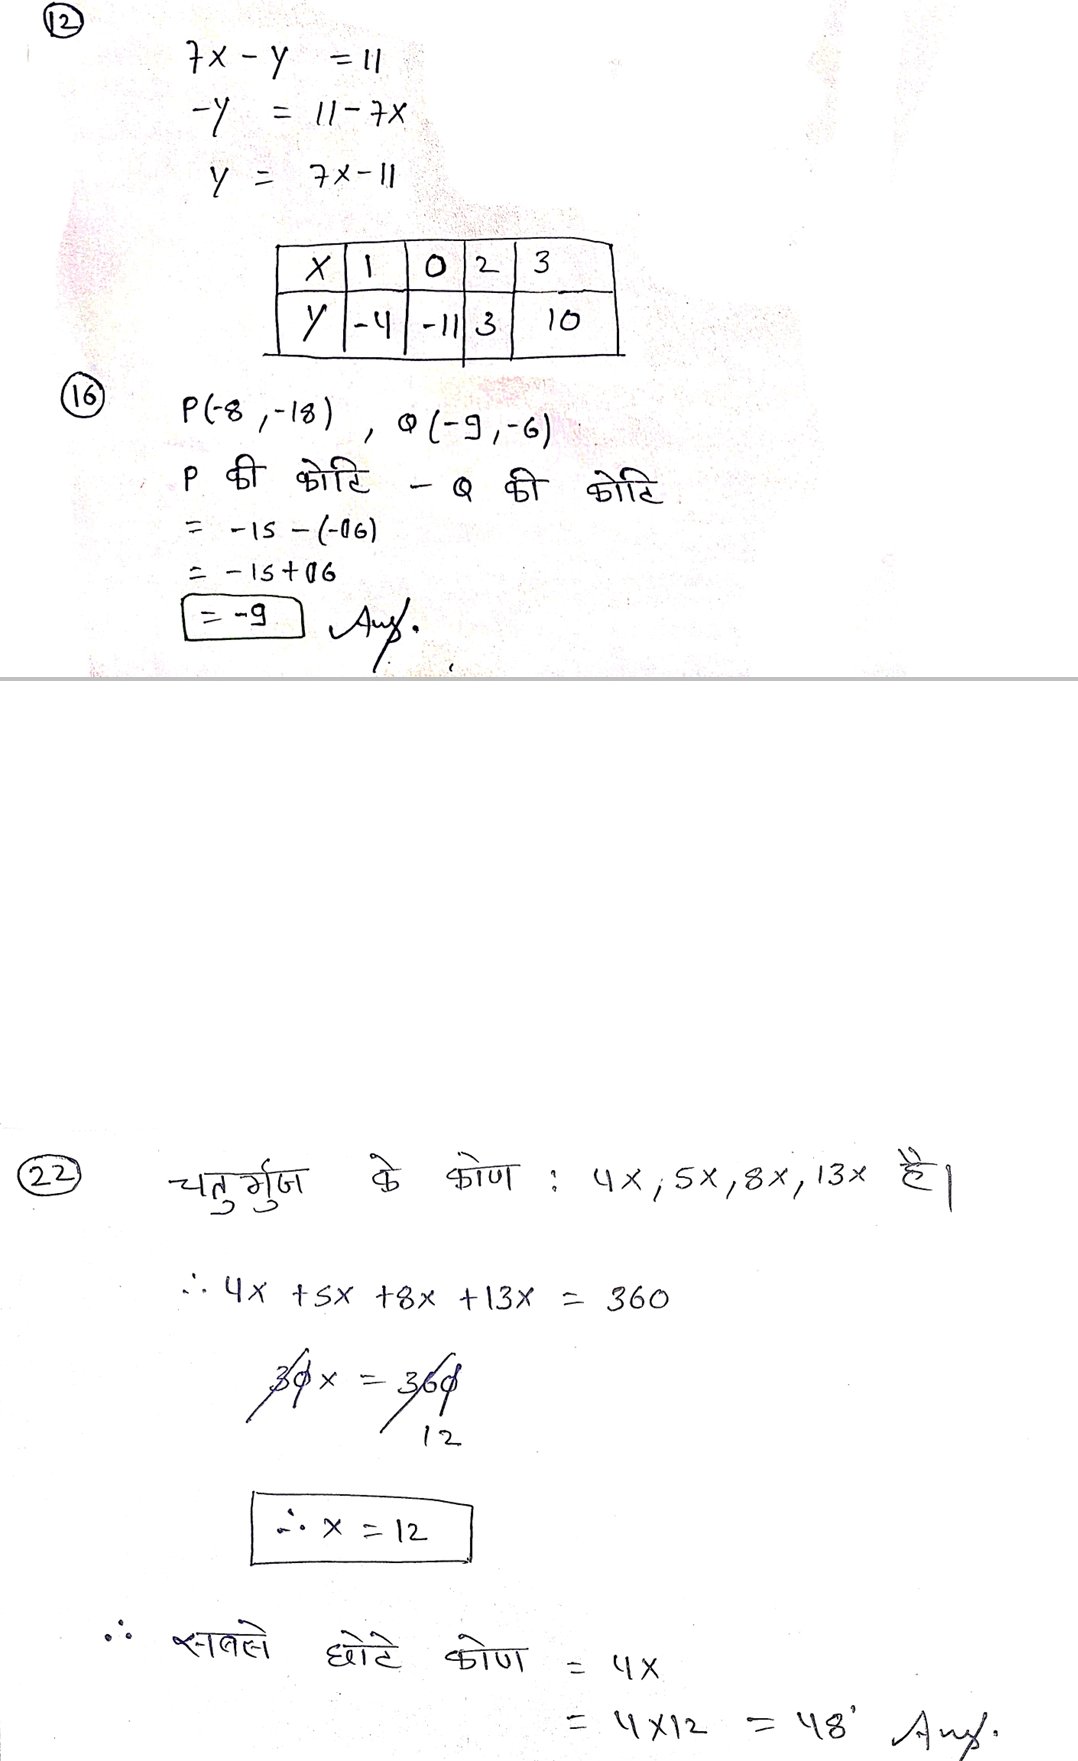 12
7x - y = 11
-y = 11 - 7x
y = 7x - 11
X 1 0 2 3
Y -4 -11 3 10
16
P(-8, -18), Q(-9, -6)
P की कोटि - Q की कोटि
= -15 - (-06)
= -15 + 06
= -9 Ans.
22 चतुर्भुज के कोण : 4x, 5x, 8x, 13x है।
∴ 4x + 5x + 8x + 13x = 360
30x = 360
12
∴ x = 12
∴ सबसे छोटे कोण = 4x
= 4x12 = 48° Ans.